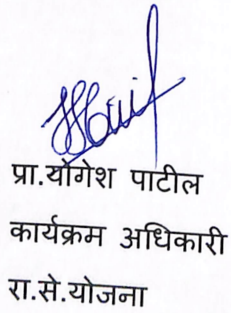 प्रा.योगेश पाटील
कार्यक्रम अधिकारी
रा.से.योजना